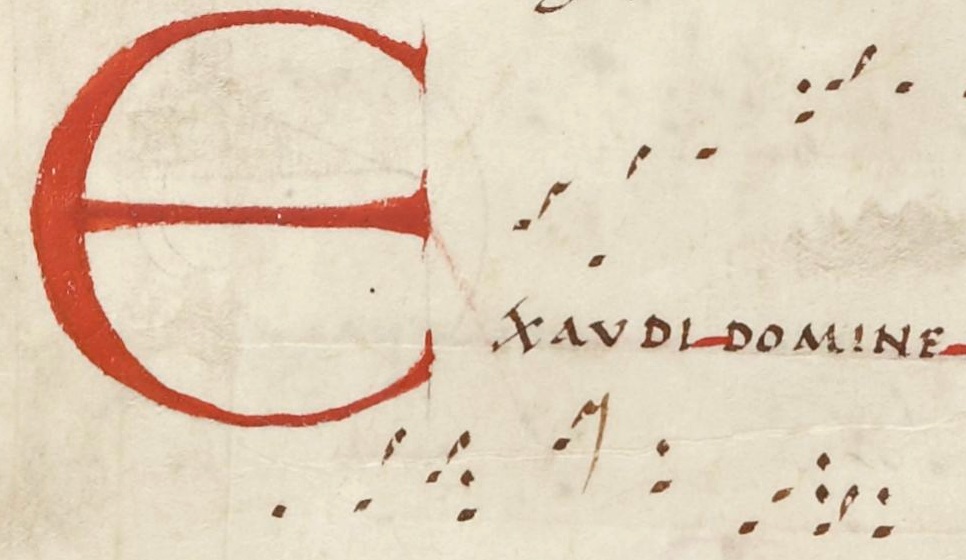 EXAVDI DOMINE